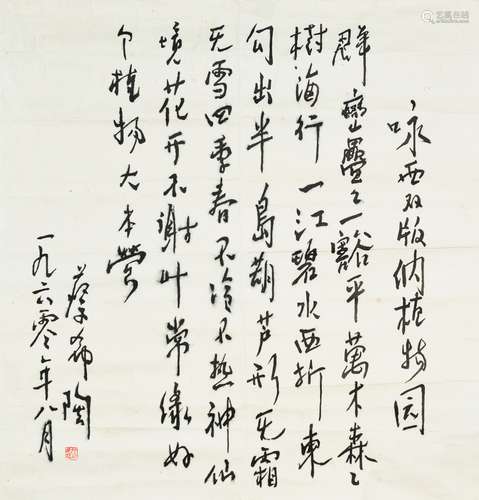 咏西双版纳植物园
群峦叠々一豁平万木森々
树海行一江碧水西折东
勾出半岛葫芦形无霜
无雪四季春不冷不热神仙
境花开不谢叶常绿好
个植物大本营
蔡希陶
一九六零年八月